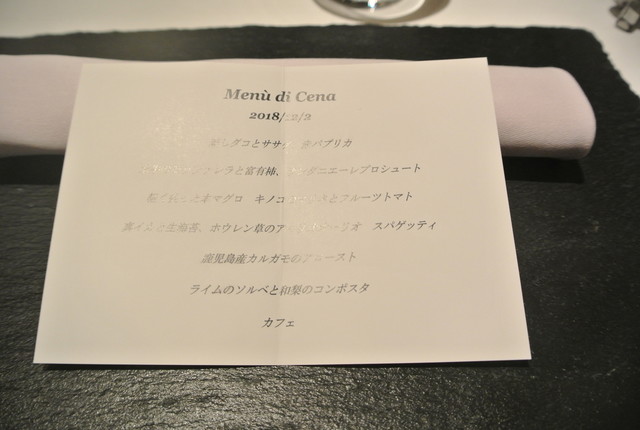 Menù di Cena
2018/12/2
蒸しダコとササ パプリカ
と富有柿、 ダニエーレプロシュート
マグロ キノコ とフルーツトマト
真イ と生海苔、ホウレン草のア リオ スパゲッティ
鹿児島産カルガモの ースト
ライムのソルベと和梨のコンポスタ
カフェ